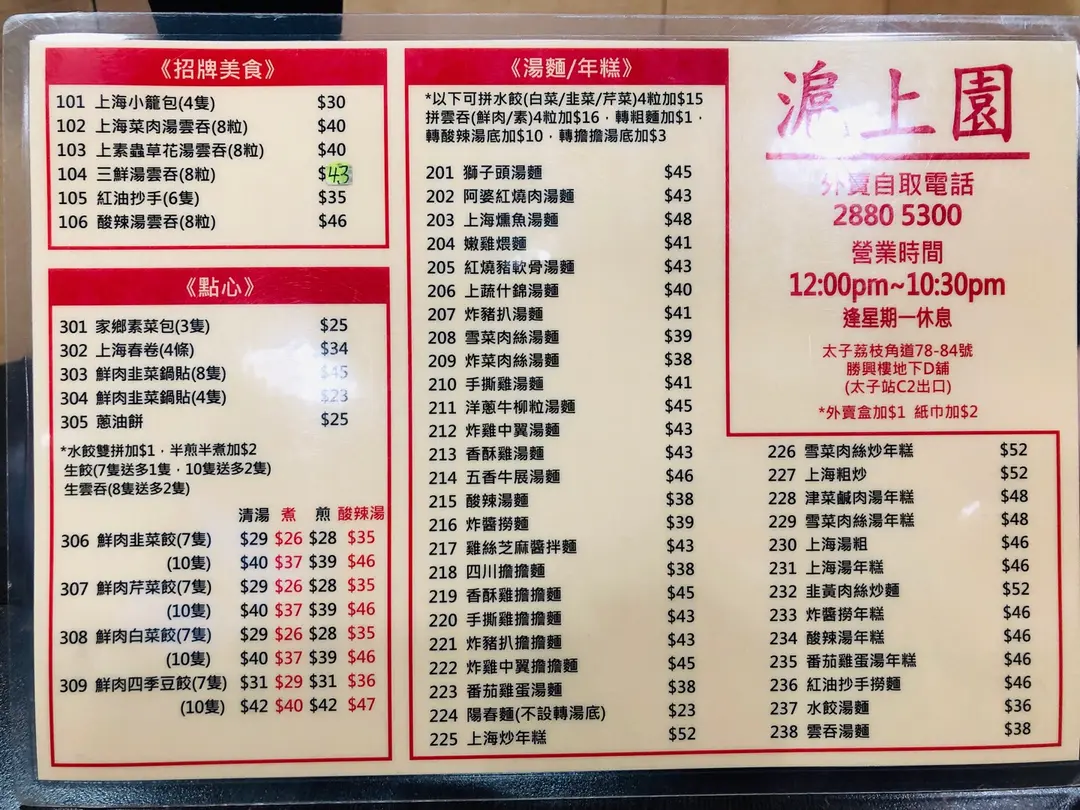 《招牌美食》
101 上海小籠包(4隻) $30
102 上海菜肉湯雲吞(8粒) $40
103 上素蟲草花湯雲吞(8粒) $40
104 三鮮湯雲吞(8粒) $43
105 紅油抄手(6隻) $35
106 酸辣湯雲吞(8粒) $46
《點心》
301 家鄉素菜包(3隻) $25
302 上海春卷(4條) $34
303 鮮肉韭菜鍋貼(8隻) $45
304 鮮肉韭菜鍋貼(4隻) $23
305 蔥油餅 $25
*水餃雙拼加$1，半煎半煮加$2
生餃(7隻送多1隻，10隻送多2隻)
生雲吞(8隻送多2隻)
清湯 煮 煎 酸辣湯
306 鮮肉韭菜餃(7隻) $29 $26 $28 $35
(10隻) $40 $37 $39 $46
307 鮮肉芹菜餃(7隻) $29 $26 $28 $35
(10隻) $40 $37 $39 $46
308 鮮肉白菜餃(7隻) $29 $26 $28 $35
(10隻) $40 $37 $39 $46
309 鮮肉四季豆餃(7隻) $31 $29 $31 $36
(10隻) $42 $40 $42 $47
《湯麵/年糕》
*以下可拼水餃(白菜/韭菜/芹菜)4粒加$15
拼雲吞(鮮肉/素)4粒加$16，轉粗麵加$1，
轉酸辣湯底加$10，轉擔擔湯底加$3
201 獅子頭湯麵 $45
202 阿婆紅燒肉湯麵 $43
203 上海燻魚湯麵 $48
204 嫩雞煨麵 $41
205 紅燒豬軟骨湯麵 $43
206 上蔬什錦湯麵 $40
207 炸豬扒湯麵 $41
208 雪菜肉絲湯麵 $39
209 炸菜肉絲湯麵 $38
210 手撕雞湯麵 $41
211 洋蔥牛柳粒湯麵 $45
212 炸雞中翼湯麵 $43
213 香酥雞湯麵 $43
214 五香牛展湯麵 $46
215 酸辣湯麵 $38
216 炸醬撈麵 $39
217 雞絲芝麻醬拌麵 $43
218 四川擔擔麵 $38
219 香酥雞擔擔麵 $45
220 手撕雞擔擔麵 $43
221 炸豬扒擔擔麵 $43
222 炸雞中翼擔擔麵 $45
223 番茄雞蛋湯麵 $38
224 陽春麵(不設轉湯底) $23
225 上海炒年糕 $52
滬上園
外賣自取電話
2880 5300
營業時間
12:00pm~10:30pm
逢星期一休息
太子荔枝角道78-84號
勝興樓地下D舖
(太子站C2出口)
*外賣盒加$1 紙巾加$2
226 雪菜肉絲炒年糕 $52
227 上海粗炒 $52
228 津菜鹹肉湯年糕 $48
229 雪菜肉絲湯年糕 $48
230 上海湯粗 $46
231 上海湯年糕 $46
232 韭黃肉絲炒麵 $52
233 炸醬撈年糕 $46
234 酸辣湯年糕 $46
235 番茄雞蛋湯年糕 $46
236 紅油抄手撈麵 $46
237 水餃湯麵 $36
238 雲吞湯麵 $38